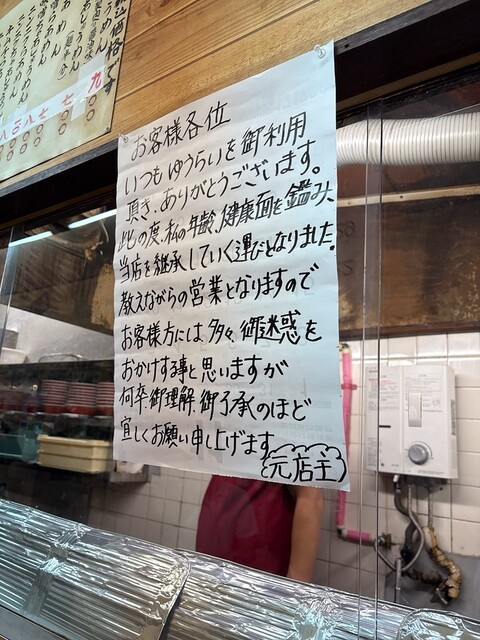 お客様各位
いつもゆうらいを御利用
頂き、ありがとうございます。
此の度、私の年齢、健康面を鑑み、
当店を継承していく運びとなりました。
教えながらの営業となりますので
お客様方には多々、御迷惑を
おかけする事と思いますが
何卒御理解、御了承のほど
宜しくお願い申し上げます
元店主